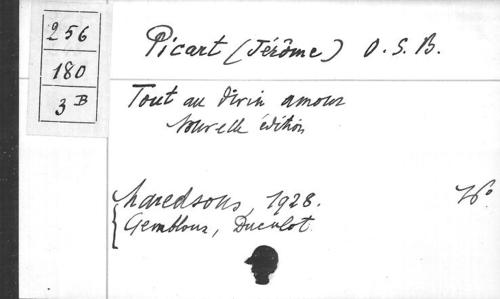 256
180
3 B
Picart (Jérôme) O.S.B.
Tout au divin amour
Nouvelle édition
Maredsous, 1928.
Gembloux, Duculot